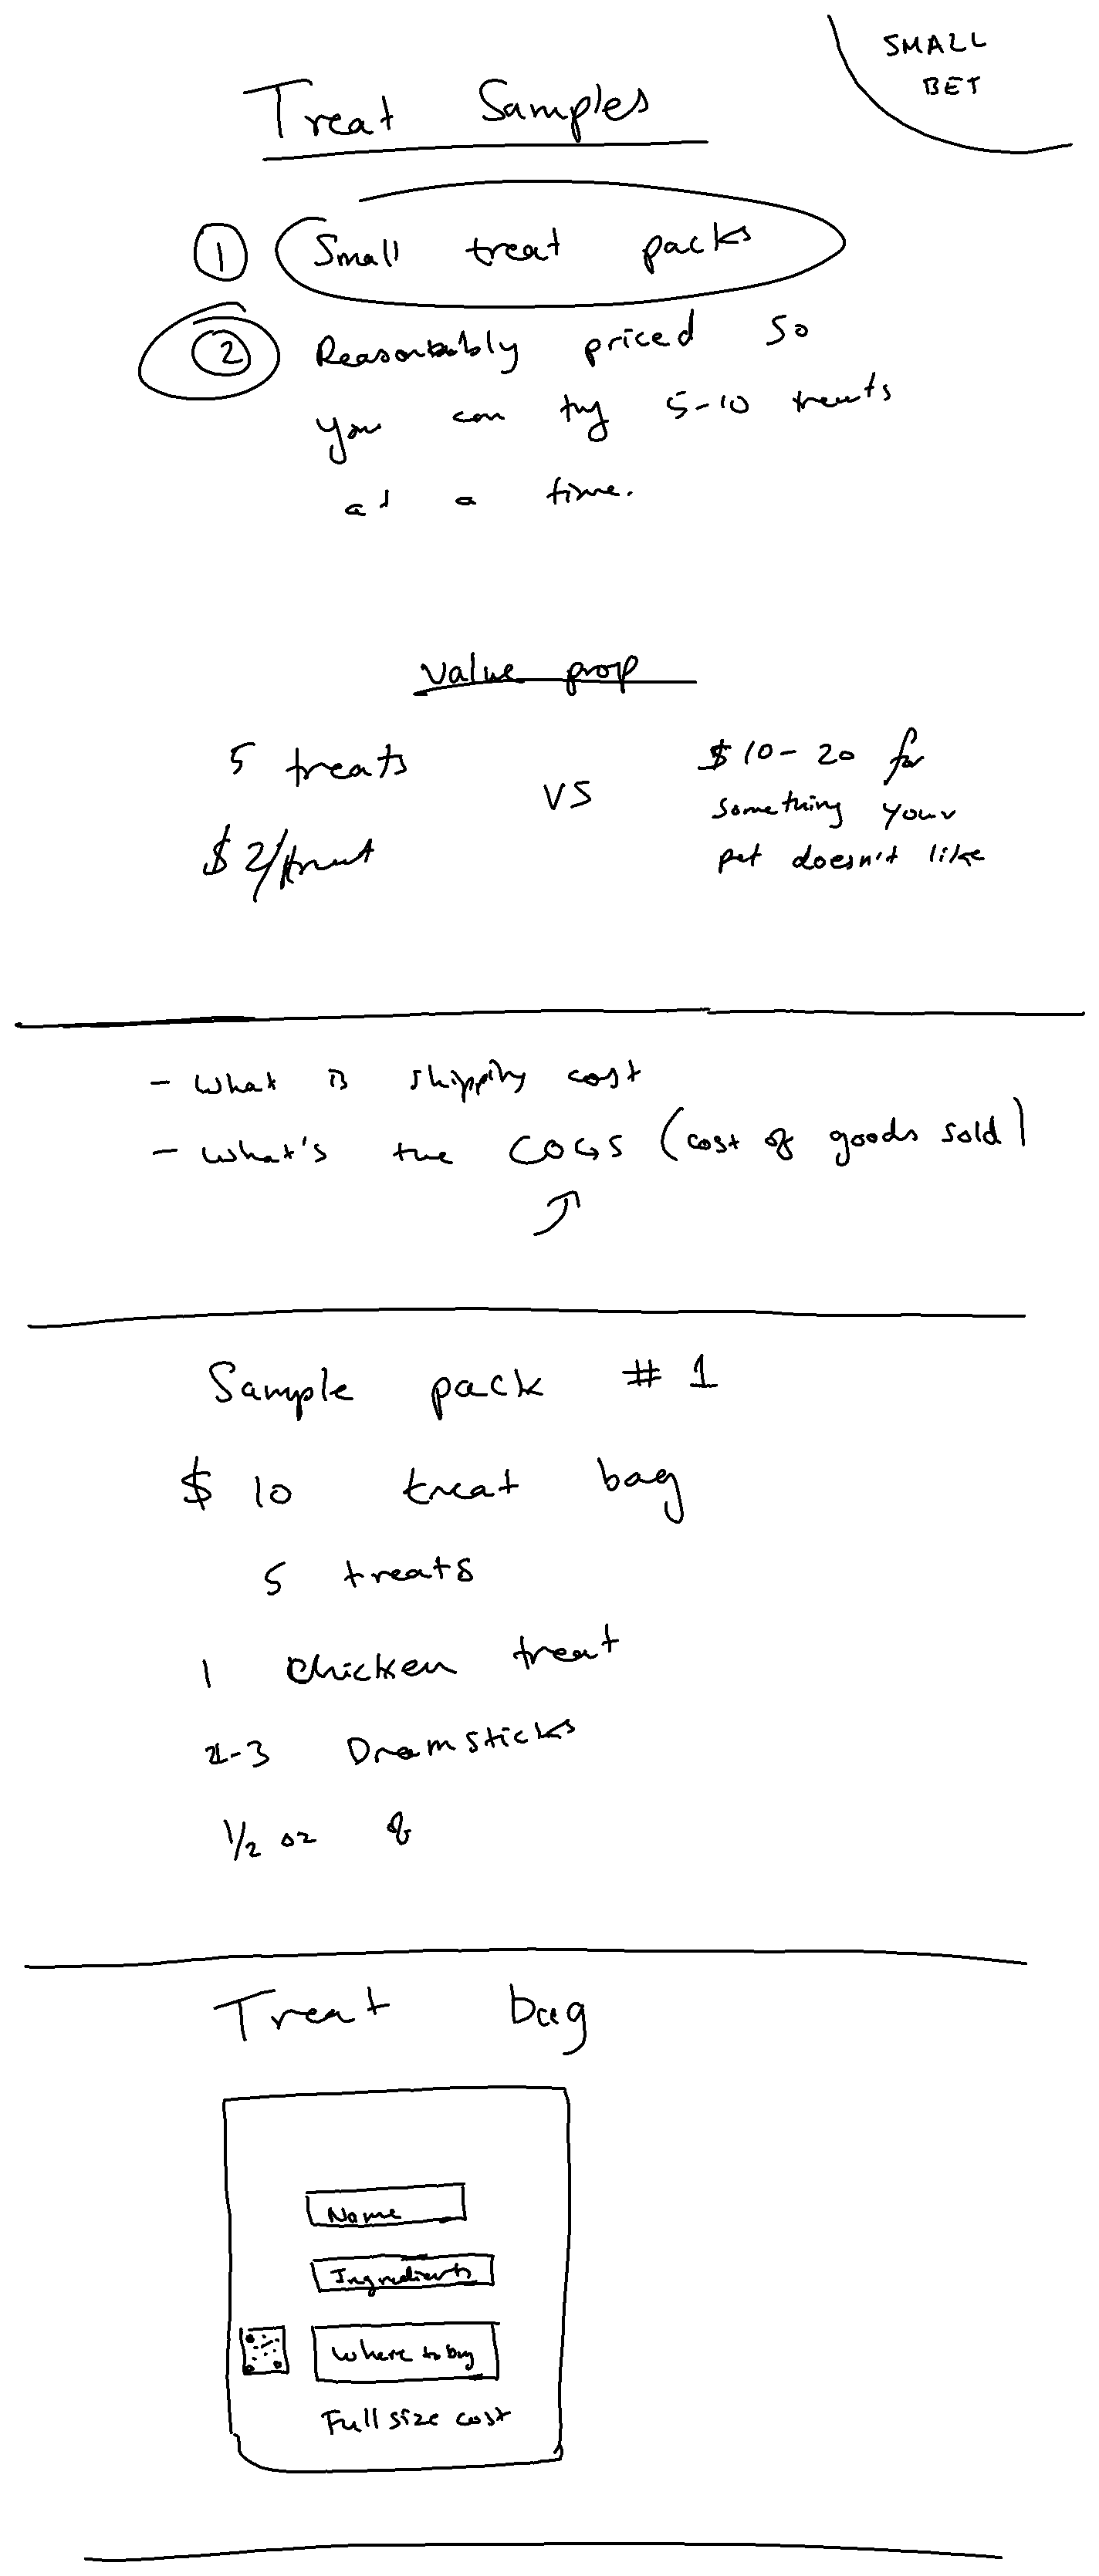 SMALL
BET
Treat Samples
1 Small treat packs
2 Reasonably priced so
you can try 5-10 treats
at a time.
value prop
5 treats
$2/treat
vs
$10-20 for
something your
pet doesn't like
- what is shipping cost
- what's the COGS (cost of goods sold)
Sample pack #1
$10 treat bag
5 treats
1 chicken treat
2-3 Drumsticks
1/2 oz of
Treat bag
Name
Ingredients
Where to buy
Full size cost